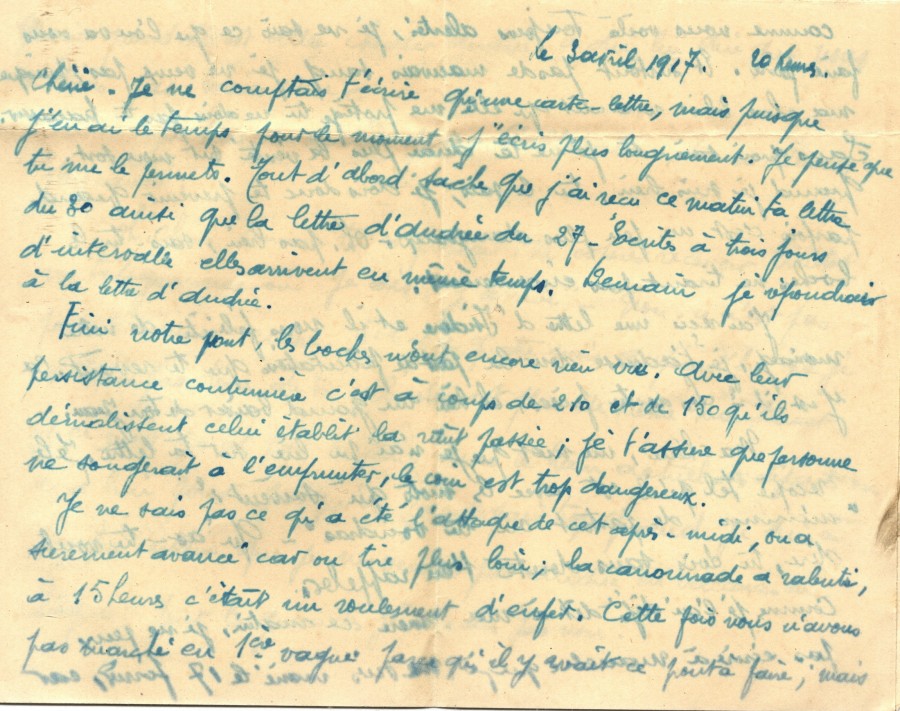 le 3 avril 1917. 20 heures
Chérie. Je ne comptais t'écrire qu'une carte-lettre, mais puisque
j'en ai le temps pour le moment j'écris plus longuement. Je pense que
tu me le permets. Tout d'abord sache que j'ai reçu ce matin ta lettre
du 30 ainsi que la lettre d'Andrée du 27 - Ecrites à trois jours
d'intervalle elles arrivent en même temps. Demain je répondrais
à la lettre d'Andrée.
Fini notre pont, les boches n'ont encore rien vu. Avec leur
persistance coutumière c'est à coups de 210 et de 150 qu'ils
démolissent celui établit la nuit passée ; je t'assure que personne
ne songerait à l'emprunter, le coin est trop dangereux.
Je ne sais pas ce qu'a été l'attaque de cet après-midi, on a
surement avancé car on tire plus loin ; la canonnade a ralenti,
à 15 heures c'était un roulement d'enfer. Cette fois nous n'avons
pas marché en 1ère vague parce qu'il y avait ce pont à faire, mais